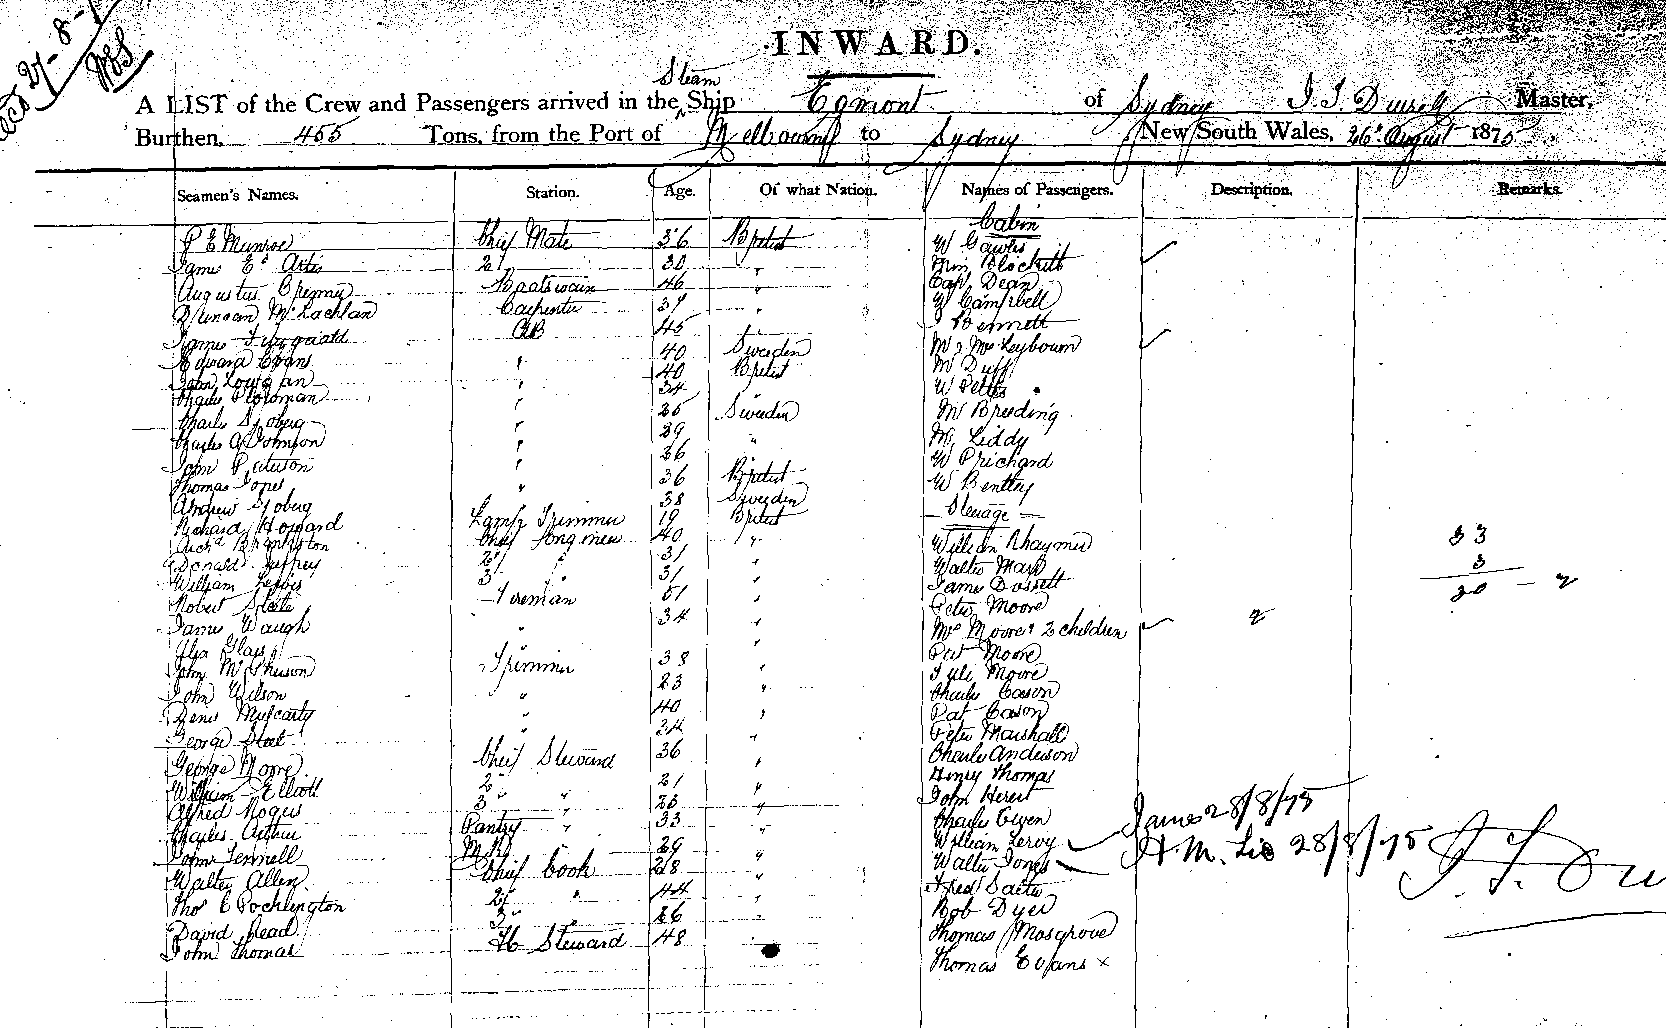 27-8-
INWARD.
Steam
A LIST of the Crew and Passengers arrived in the Ship Egmont of Sydney Master,
Burthen, 455 Tons, from the Port of Melbourne to Sydney New South Wales, 26th August 1875
Seamen's Names. Station. Age. Of what Nation. Names of Passengers. Description. Remarks.
Cabin
P E Munroe Chief Mate 36 British W Gawlis
James Ed Artis 2/ 30 " Mrs Blockett
Augustus Boatswain 46 " Capt Dean
Duncan McLachlan Carpenter 37 " W Campbell
James Fitzgerald AB 45 " J Bennett
Edward Evans " 40 Sweden Mr & Mrs Leybourn
John " 40 British Mr Duff
Charles " 34 " W
Charles Sjoberg " 25 Sweden Mr Breeding
Charles A Johnson " 29 " Mr Liddy
John Paterson " 26 W Prichard
Thomas Jones " 36 British W Bentley
Andrew Sjoberg " 38 Sweden
Steerage
Richard Howard Lamp Trimmer 19 British
Archd Brankston Chief 40 " William Rhaymer 33
Donald Jeffrey 2/ " 31 " Walter 3
William 3 31 " James Dossett 30 - 2
Robert Fireman 51 " Peter Moore
James Waugh " 34 " Mrs Moore & 2 children 2
Alex Glass " Pat Moore
John McPherson Trimmer 38 " Moore
John Wilson " 23 " Charles Cason
Denis " 40 " Pat Cason
George " 24 " Peter Marshall
George Moore Chief Steward 36 " Charles Anderson
William Elliott 2" " 21 " Henry Thomas
Alfred Rogers 3" " 23 " John
Charles Arthur Pantry " 33 " Charles Owen James 28/8/75
John Fennell 29 " William Leroy
Walter Allen Chief Cook 28 " Walter Jones H. M. 28/8/75
Thos E Pocklington 2/ " 44 " Fred Salter
David Read 3" " 26 " Bob Dyer
John Thomas Steward 48 Thomas Mosgrove
Thomas Evans x